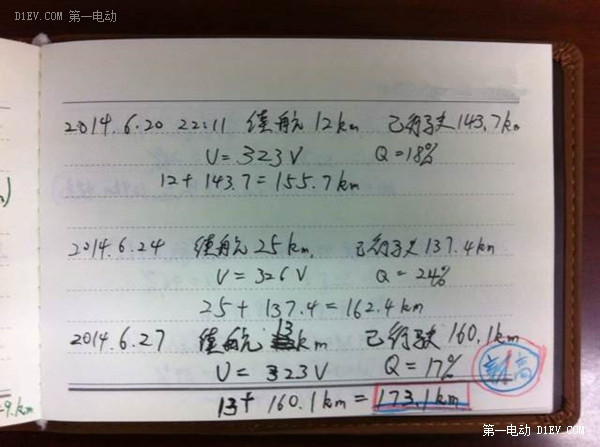 D1EV.COM 第一电动
2014.6.20 22:11 续航12km 已行驶143.7km
U=323V Q=18%
12+143.7=155.7km
2014.6.24 续航25km, 已行驶137.4km
U=326V Q=24%
25+137.4=162.4km
2014.6.27 续航13km 已行驶160.1km
U=323V Q=17%
新高
13+160.1km=173.1km
9.km
第一电动 D1EV.COM